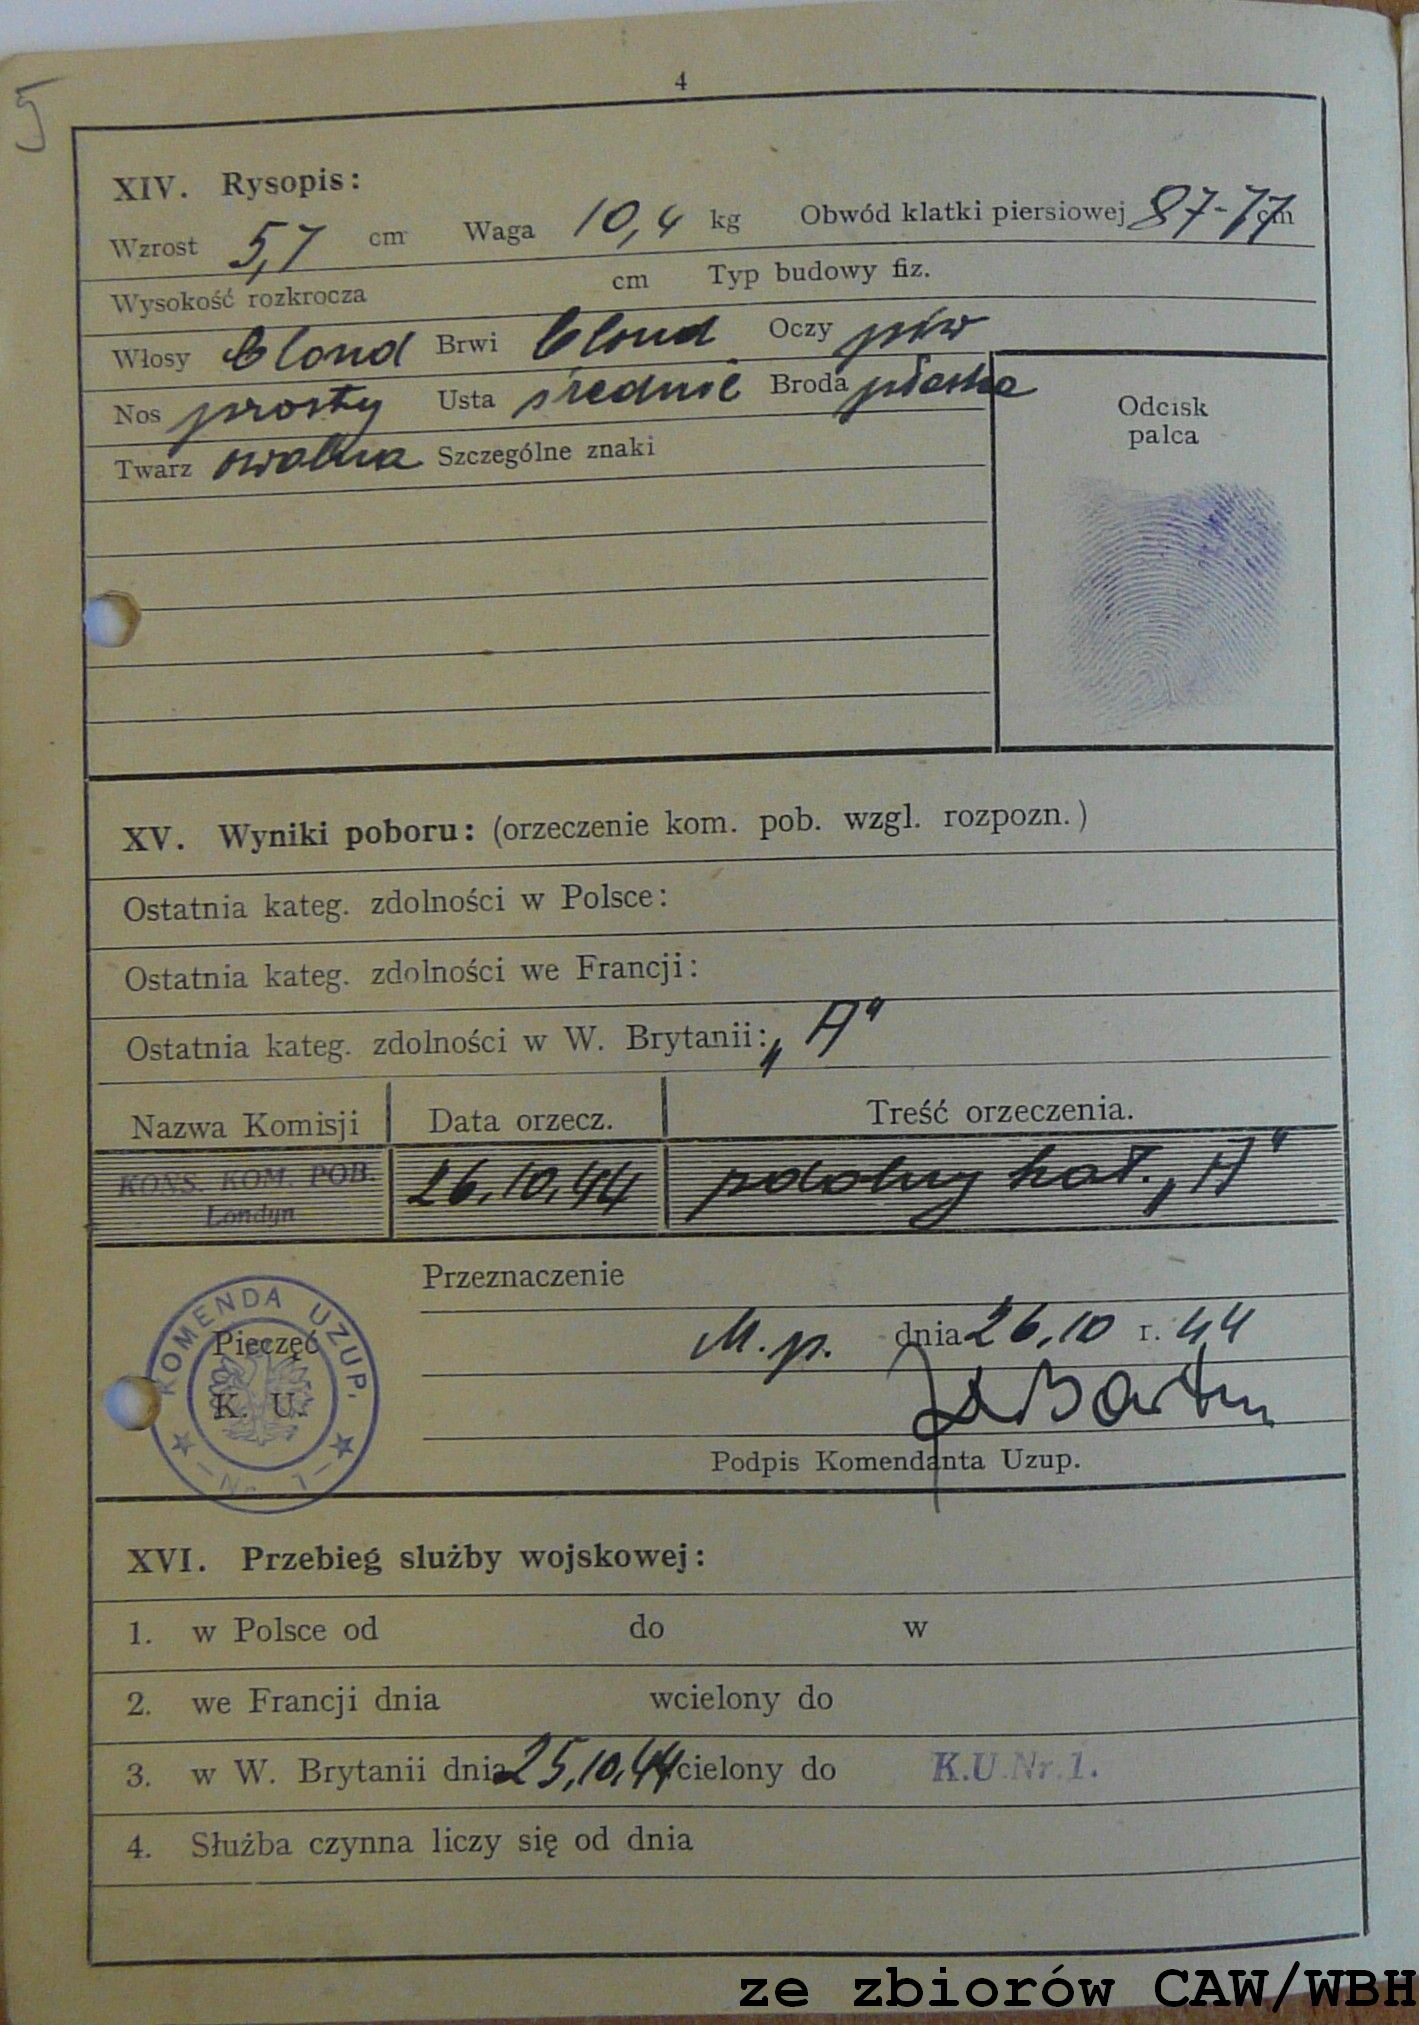 5
4
XIV. Rysopis:
Wzrost 5,7 cm Waga 10,4 kg Obwód klatki piersiowej 87-77 cm
Wysokość rozkrocza cm Typ budowy fiz.
Włosy blond Brwi blond Oczy piw
Nos prosty Usta średnie Broda płaska
Twarz owalna Szczególne znaki
Odcisk
palca
XV. Wyniki poboru: (orzeczenie kom. pob. wzgl. rozpozn.)
Ostatnia kateg. zdolności w Polsce:
Ostatnia kateg. zdolności we Francji:
Ostatnia kateg. zdolności w W. Brytanii: „A"
Nazwa Komisji Data orzecz. Treść orzeczenia.
KONS. KOM. POB. 26.10.44 zdolny kat. „A"
Londyn
Przeznaczenie
M.p. dnia 26.10 r. 44
Pieczęć
K. U.
KOMENDA UZUP.
Nr. 1
Podpis Komendanta Uzup.
XVI. Przebieg służby wojskowej:
1. w Polsce od do w
2. we Francji dnia wcielony do
3. w W. Brytanii dnia 25.10.44 wcielony do K.U.Nr.1.
4. Służba czynna liczy się od dnia
ze zbiorów CAW/WBH